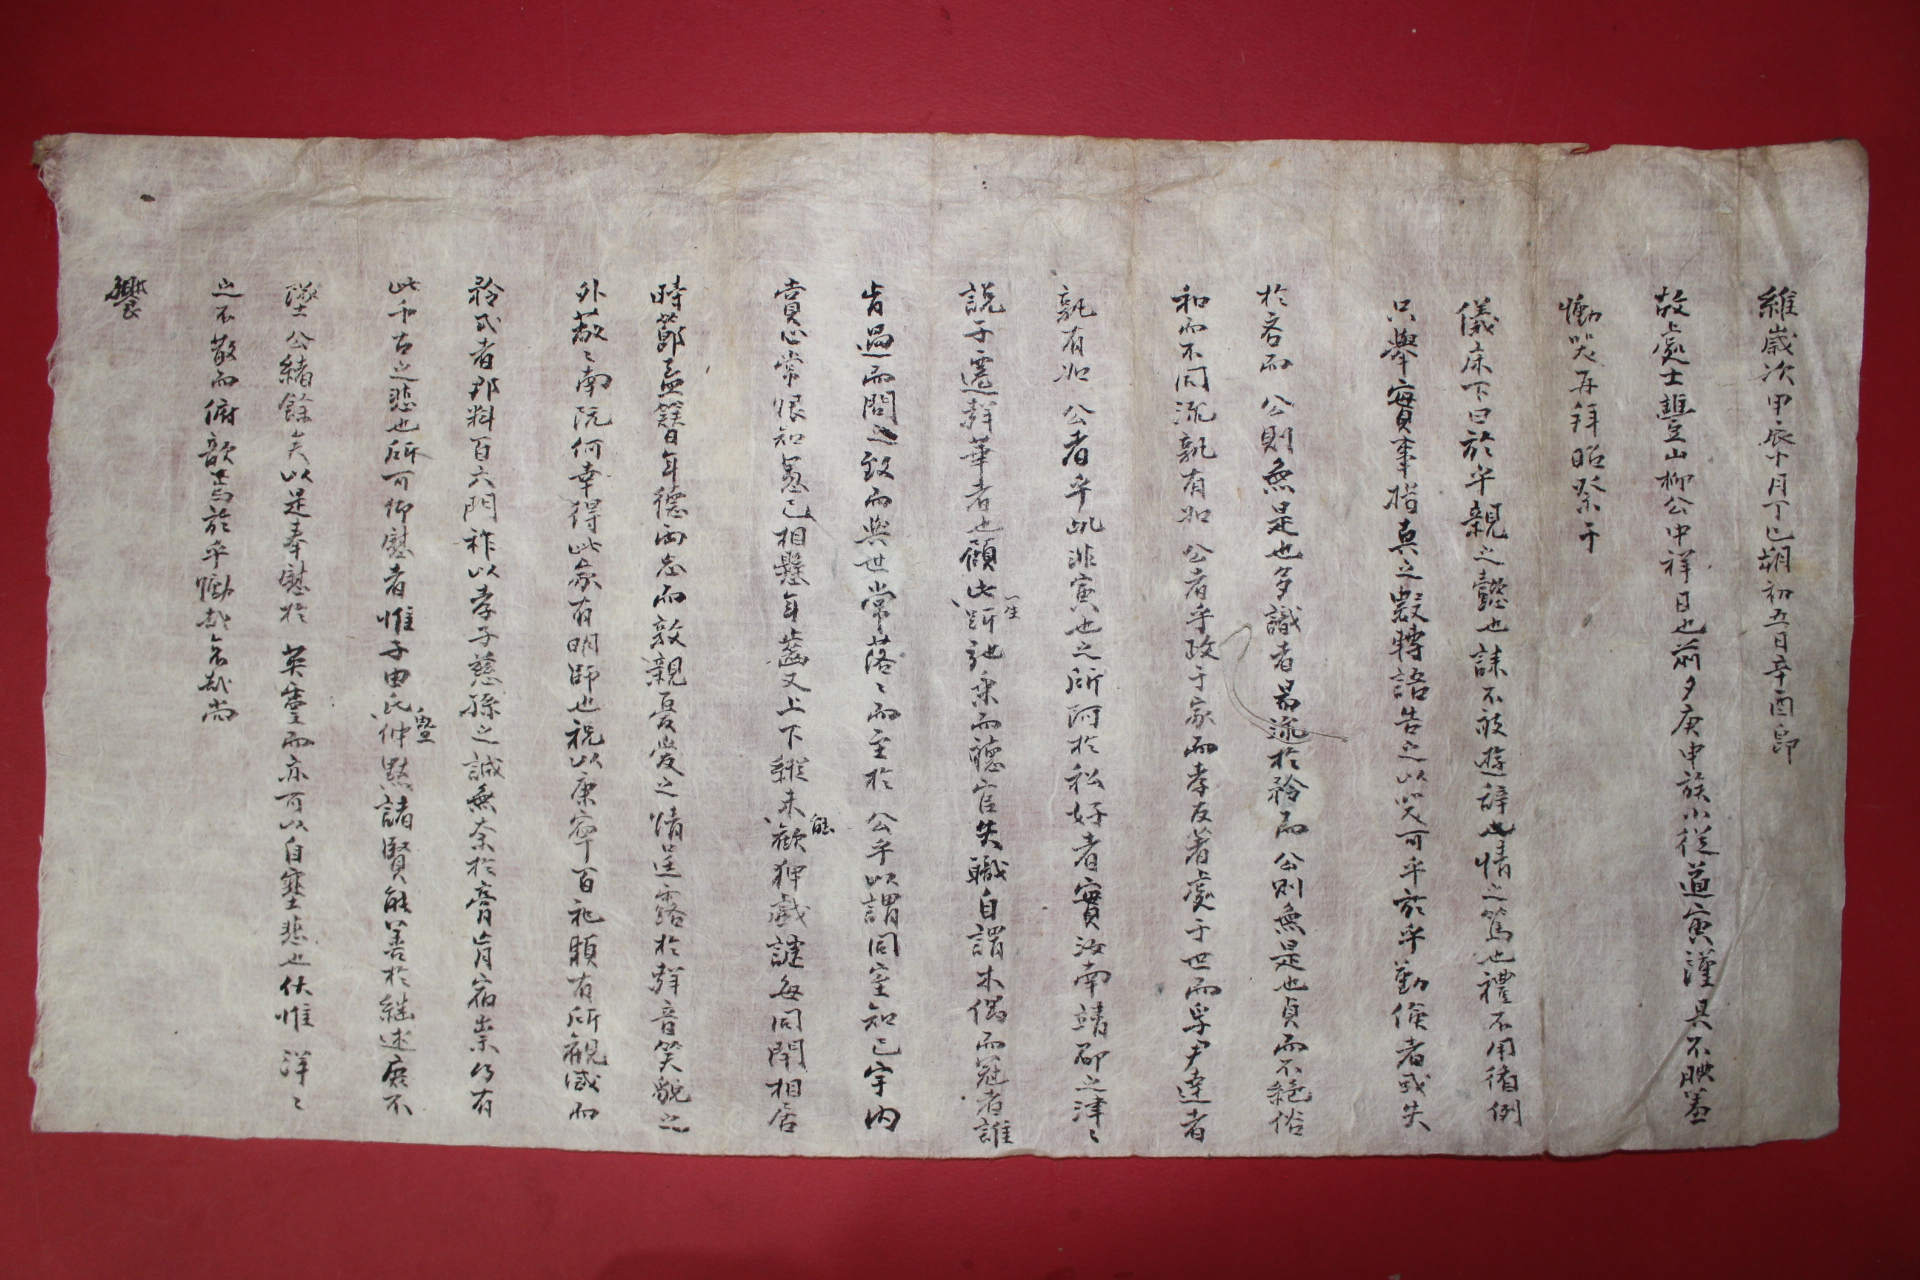 維歲次甲辰十月丁巳朔初五日辛酉卽
故處士豐山柳公中祥日也前夕庚申族小從道寅謹具不腆羞
慟哭再拜昭祭于
儀床下曰於乎親之懿也誄不敢遊辭也情之篤也禮不用循例
只擧實事指眞之幾轉語告之以哭可乎於乎勤儉者或失
於吝而 公則無是也多識者易流於矜而 公則無是也貞而不絕俗
和而不同流孰有如 公者乎政于家而孝友著處于世而孚尹達者
孰有如 公者乎此非寅也之所阿於私好者實汝南靖節之津々
說于還群華者也顧此一生踈弛乘而聽官失職自謂木偶而冠者誰
肯過而問之致而與世常落々而至於 公乎以謂同室知己宇内
賞心常恨知舊已相懸年齒又上下縱未能歡狎戲謔每同閈相居
時節盍簪日年德兩忘而敦親憂愛之情呈露於辭音笑貌之
外蔌々南阮何幸得此家有明師也祝以康寧百祀願有所觀感而
矜式者那料百六門祚以孝子慈孫之誠無奈於膏肓宿祟乃有
此千古之悲也所可仰慰者惟子由氏仲塤點諸賢能善於繼述庶不
墜 公緖餘矣以是奉慰於 英靈而亦可以自塞悲也伏惟 洋々
之不散而俯歆焉於乎慟哉哀哉尚
饗